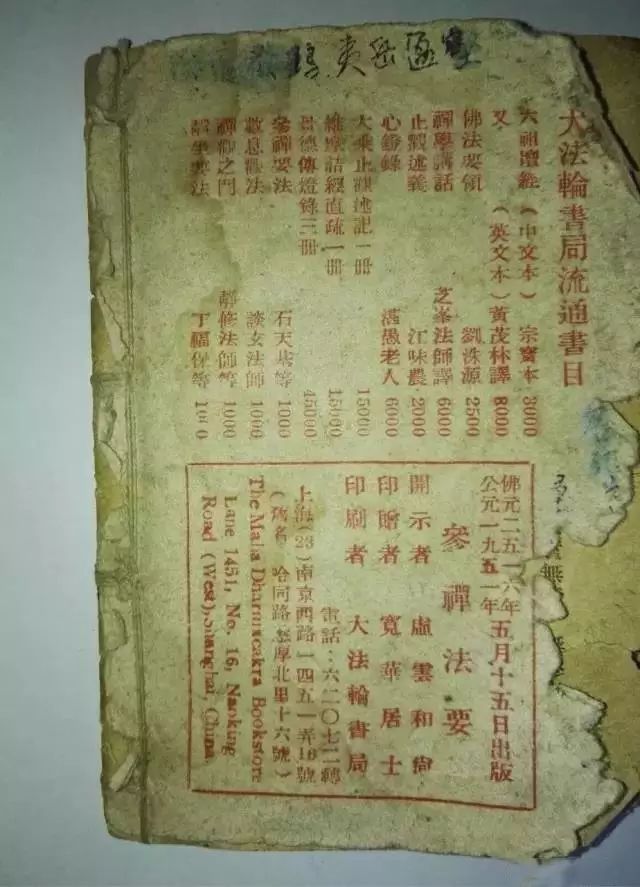 大法輪書局流通書目
六祖壇經（中文本）宗寶本 3000
又（英文本）黃茂林譯 8000
佛法要領 劉洙源 2500
禪學講話 芝峯法師譯 6000
止觀述義 江味農 2000
心燈錄 湛愚老人 6000
大乘止觀述記一冊 15000
維摩詰經直疏一冊 15000
景德傳燈錄三冊 45000
參禪要法 石天基等 1000
數息觀法 談玄法師 1000
禪觀之門 靜修法師等 1000
靜坐要法 丁福保等 1000
佛元二五一六年
公元一九五一年五月十五日出版
參禪法要
開示者 虛雲和尙
印贈者 寬華居士
印刷者 大法輪書局
電話：六二〇七二轉
上海(23)南京西路一四五一弄16號
（舊名 哈同路慈厚北里十六號）
The Maha Dharmacakra Bookstore
Lane 1451, No. 16, Nanking
Road (West), Shanghai, China.